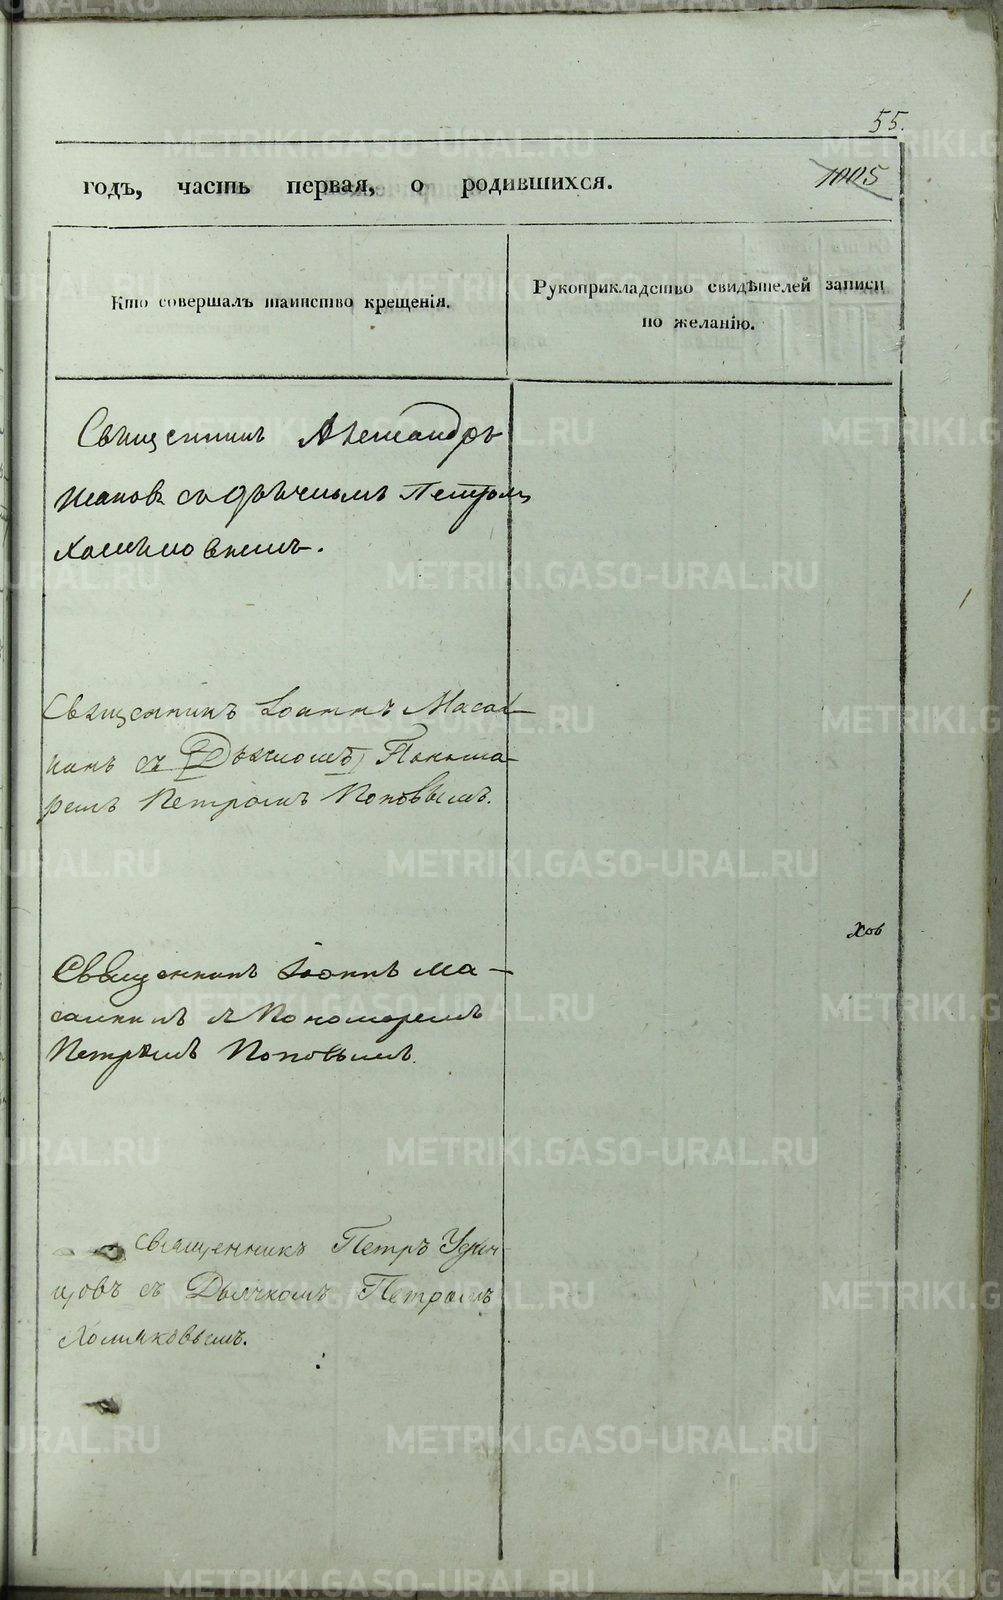 55.
1005
годъ, часть первая, о родившихся.
Кто совершалъ таинство крещенія.
Рукоприкладство свидѣтелей записи
по желанію.
Священникъ Александръ
Ивановъ съ дьячкомъ Петромъ
Хомяковымъ.
Священникъ Іоаннъ Масал-
кинъ съ Дьячкомъ Понома-
ремъ Петромъ Поповымъ.
Хов
Священникъ Іоаннъ Ма-
Пономаремъ
Петромъ Поповымъ.
Священникъ Петръ Удин-
цовъ съ Дьячкомъ Петромъ
Хомяковымъ.
METRIKI.GASO-URAL.RU